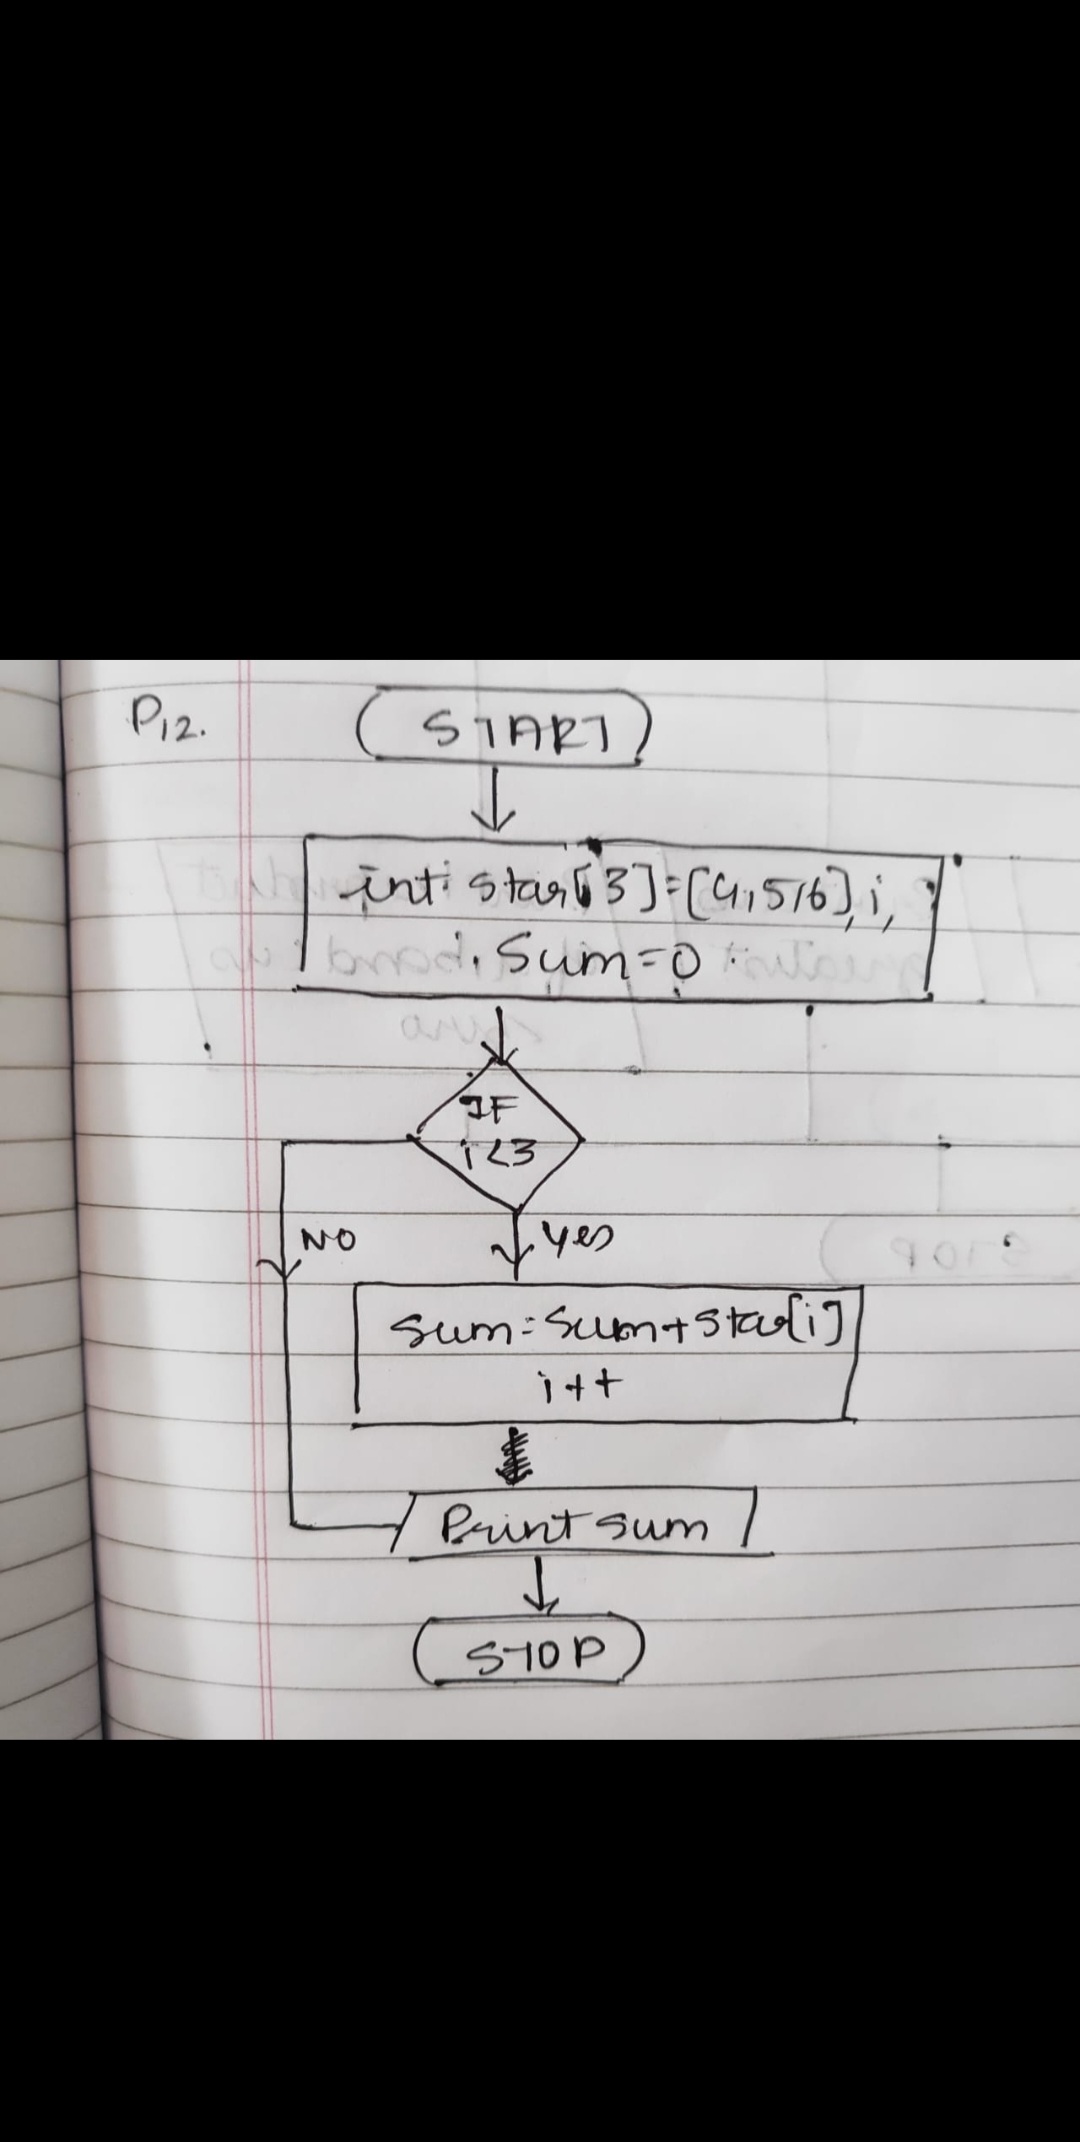 P12.
START
int star[3]=[4,5,6], i,
sum=0
IF
i<3
NO
Yes
sum=sum+star[i]
i++
Print sum
STOP